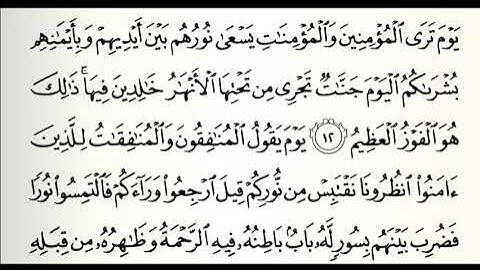 يَوْمَ تَرَى ٱلْمُؤْمِنِينَ وَٱلْمُؤْمِنَٰتِ يَسْعَىٰ نُورُهُم بَيْنَ أَيْدِيهِمْ وَبِأَيْمَٰنِهِم
بُشْرَىٰكُمُ ٱلْيَوْمَ جَنَّٰتٌ تَجْرِى مِن تَحْتِهَا ٱلْأَنْهَٰرُ خَٰلِدِينَ فِيهَا ۚ ذَٰلِكَ
هُوَ ٱلْفَوْزُ ٱلْعَظِيمُ ١٢ يَوْمَ يَقُولُ ٱلْمُنَٰفِقُونَ وَٱلْمُنَٰفِقَٰتُ لِلَّذِينَ
ءَامَنُوا۟ ٱنظُرُونَا نَقْتَبِسْ مِن نُّورِكُمْ قِيلَ ٱرْجِعُوا۟ وَرَآءَكُمْ فَٱلْتَمِسُوا۟ نُورًا
فَضُرِبَ بَيْنَهُم بِسُورٍ لَّهُۥ بَابٌۢ بَاطِنُهُۥ فِيهِ ٱلرَّحْمَةُ وَظَٰهِرُهُۥ مِن قِبَلِهِ